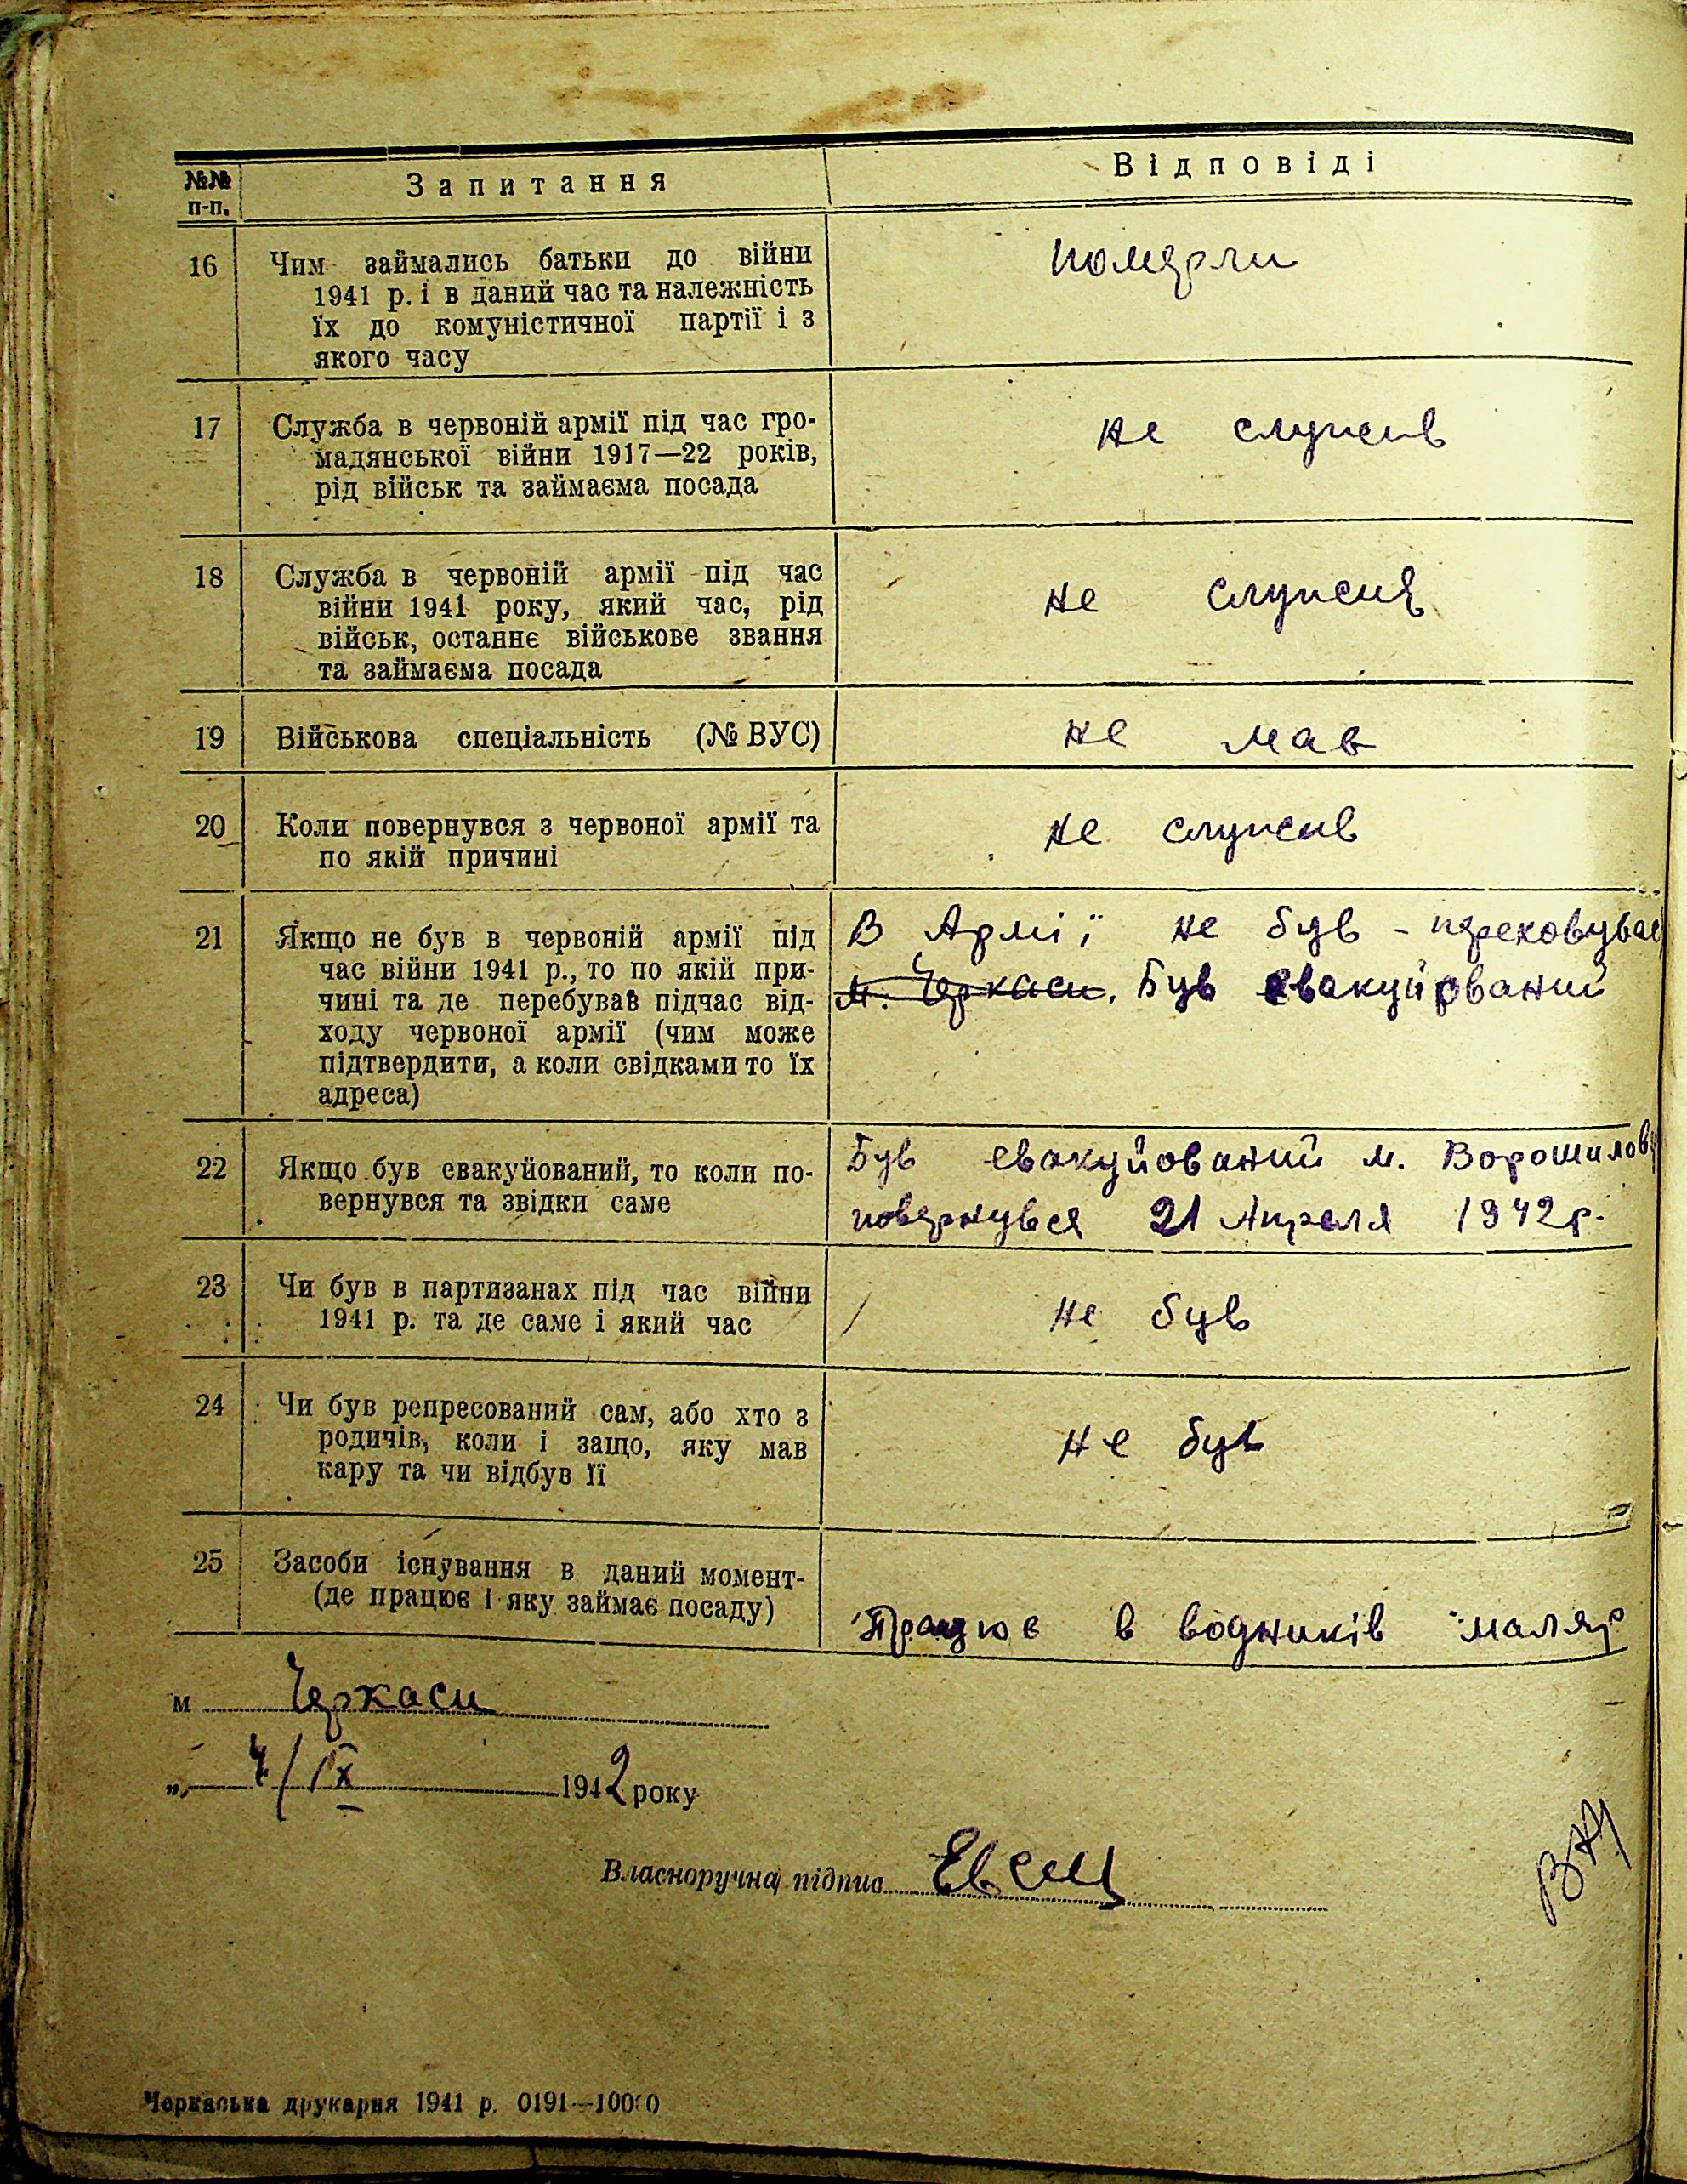 №№ п-п.
Запитання
Відповіді
16
Чим займались батьки до війни
1941 р. і в даний час та належність
їх до комуністичної партії і з
якого часу
померли
17
Служба в червоній армії під час гро-
мадянської війни 1917—22 років,
рід військ та займаєма посада
не служив
18
Служба в червоній армії під час
війни 1941 року, який час, рід
військ, останнє військове звання
та займаєма посада
не служив
19
Військова спеціальність (№ ВУС)
не мав
20
Коли повернувся з червоної армії та
по якій причині
не служив
21
Якщо не був в червоній армії під
час війни 1941 р., то по якій при-
чині та де перебував підчас від-
ходу червоної армії (чим може
підтвердити, а коли свідками то їх
адреса)
В Армії не був -
м. Черкаси. Був евакуйрований
22
Якщо був евакуйований, то коли по-
вернувся та звідки саме
Був евакуйований м. Ворошилов
повернувся 21 Апреля 1942р.
23
Чи був в партизанах під час війни
1941 р. та де саме і який час
не був
24
Чи був репресований сам, або хто з
родичів, коли і защо, яку мав
кару та чи відбув її
не був
25
Засоби існування в даний момент-
(де працює і яку займає посаду)
Працює в водників маляр
м Черкаси
„ /IX 1942 року
Власноручна підпис
Черкаська друкарня 1941 р. 0191—10000